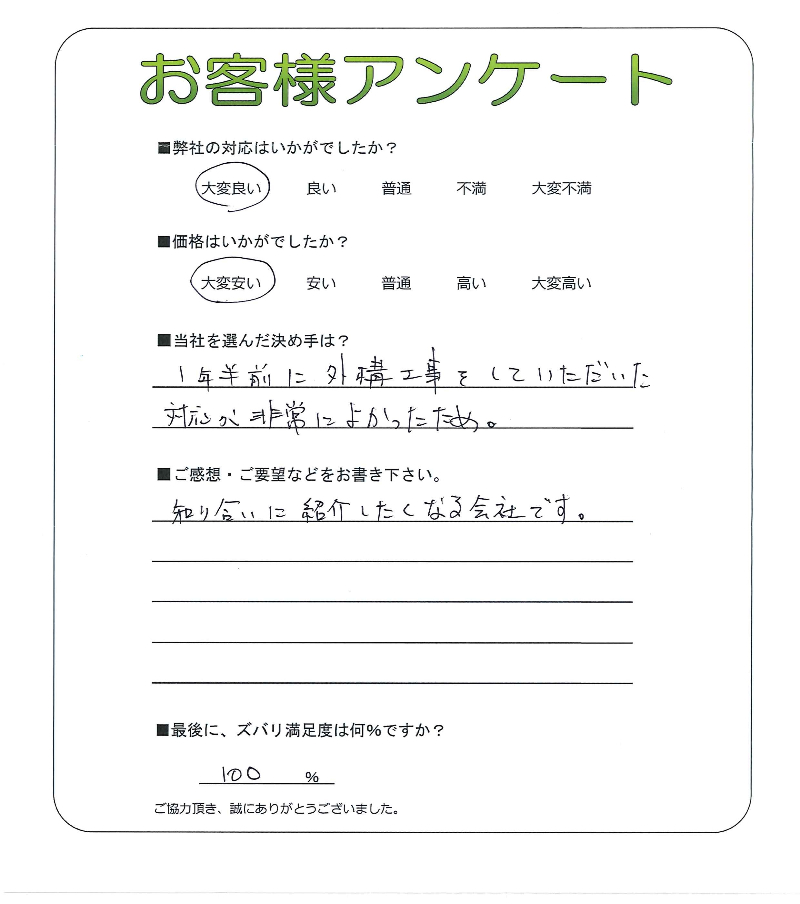 お客様アンケート
■弊社の対応はいかがでしたか？
大変良い 良い 普通 不満 大変不満
■価格はいかがでしたか？
大変安い 安い 普通 高い 大変高い
■当社を選んだ決め手は？
1年半前に外構工事をしていただいた
対応が非常によかったため。
■ご感想・ご要望などをお書き下さい。
知り合いに紹介したくなる会社です。
■最後に、ズバリ満足度は何%ですか？
100 %
ご協力頂き、誠にありがとうございました。